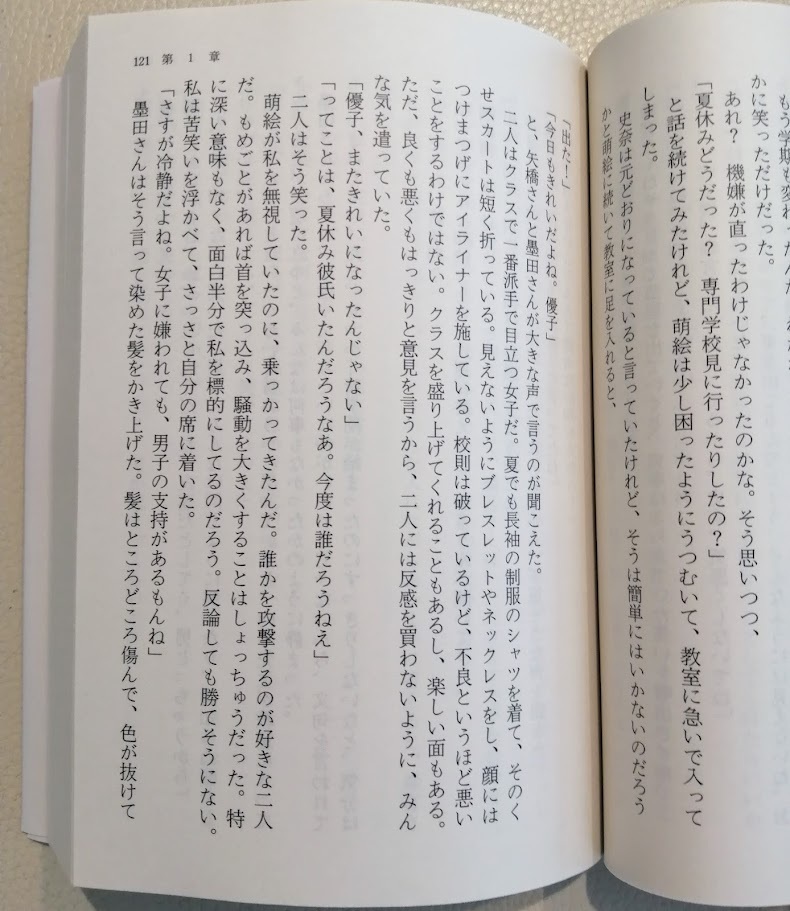 かに笑っただけだった。
あれ？　機嫌が直ったわけじゃなかったのかな。そう思いつつ、
「夏休みどうだった？　専門学校見に行ったりしたの？」
と話を続けてみたけれど、萌絵は少し困ったようにうつむいて、教室に急いで入って
しまった。
史奈は元どおりになっていると言っていたけれど、そうは簡単にはいかないのだろう
かと萌絵に続いて教室に足を入れると、
「出た！」
「今日もきれいだよね。優子」
と、矢橋さんと墨田さんが大きな声で言うのが聞こえた。
二人はクラスで一番派手で目立つ女子だ。夏でも長袖の制服のシャツを着て、そのく
せスカートは短く折っている。見えないようにブレスレットやネックレスをし、顔には
つけまつげにアイライナーを施している。校則は破っているけど、不良というほど悪い
ことをするわけではない。クラスを盛り上げてくれることもあるし、楽しい面もある。
ただ、良くも悪くもはっきりと意見を言うから、二人には反感を買わないように、みん
な気を遣っていた。
「優子、またきれいになったんじゃない」
「ってことは、夏休み彼氏いたんだろうなあ。今度は誰だろうねえ」
二人はそう笑った。
萌絵が私を無視していたのに、乗っかってきたんだ。誰かを攻撃するのが好きな二人
だ。もめごとがあれば首を突っ込み、騒動を大きくすることはしょっちゅうだった。特
に深い意味もなく、面白半分で私を標的にしてるのだろう。反論しても勝てそうにない。
私は苦笑いを浮かべて、さっさと自分の席に着いた。
「さすが冷静だよね。女子に嫌われても、男子の支持があるもんね」
墨田さんはそう言って染めた髪をかき上げた。髪はところどころ傷んで、色が抜けて
121　第 1 章